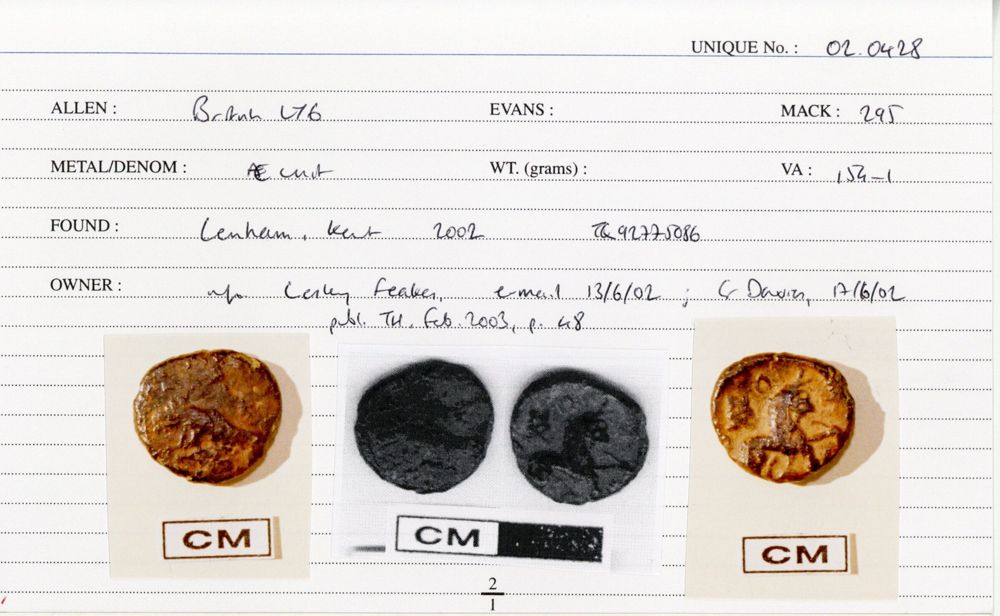 UNIQUE No. : 02.0428
ALLEN : British LY6 EVANS : MACK : 295
METAL/DENOM : Æ unit WT. (grams) : VA : 154-1
FOUND : Lenham, Kent 2002 TQ92775086
OWNER : Lesley Feakes, e-mail 13/6/02 ; G Davies, 17/6/02
publ. TH, Feb. 2003, p. 48
CM CM CM
2
1